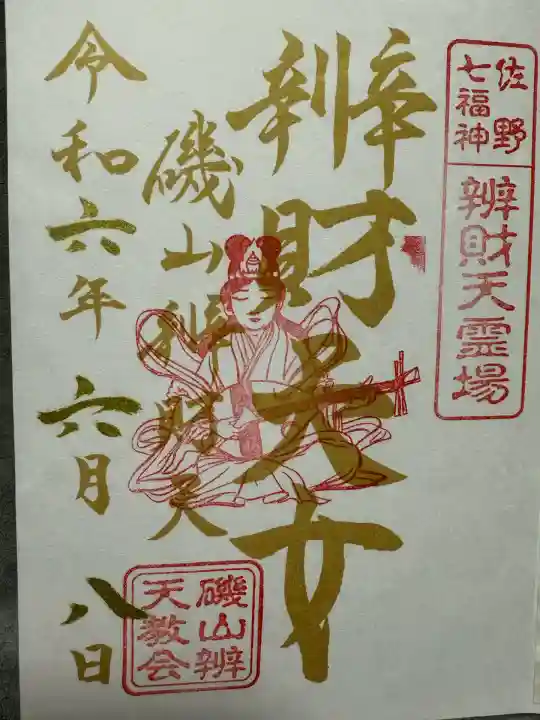 佐野
七福神
辨財天霊場
辨財天女
磯山辨財天
令和六年六月八日
磯山辨
天教会